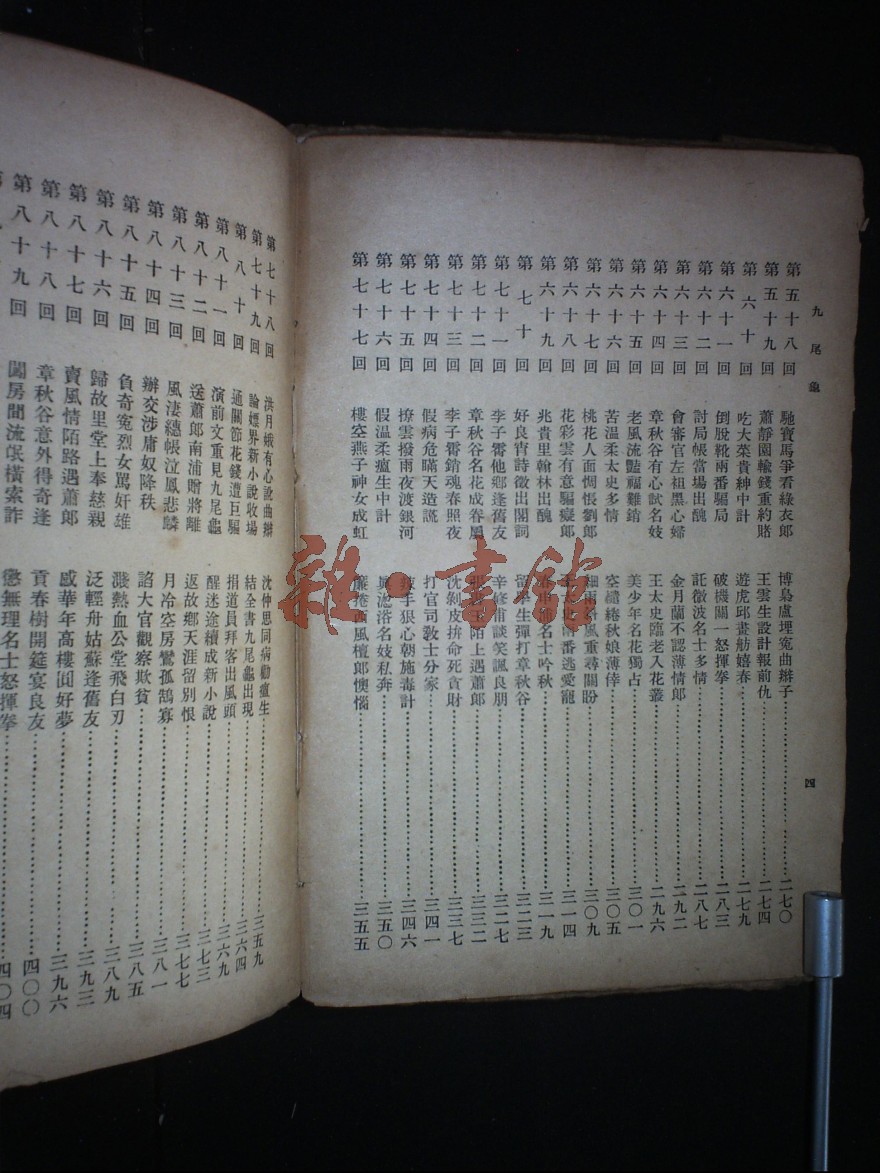 九尾龜
四
第五十八回 馳寶馬爭看綠衣郎 博梟盧埋冤曲辮子 二七〇
第五十九回 蕭靜園輸錢重約賭 王雲生設計報前仇 二七四
第六十回 吃大菜貴紳中計 遊虎邱畫舫嬉春 二七九
第六十一回 倒脫靴兩番騙局 破機關一怒揮拳 二八三
第六十二回 討局帳當場出醜 託微波名士多情 二八七
第六十三回 會審官左袒黑心婦 金月蘭不認薄情郎 二九二
第六十四回 章秋谷有心試名妓 王太史臨老入花叢 二九六
第六十五回 老風流豔福難銷 美少年名花獨占 三〇一
第六十六回 苦溫柔太史多情 空繾綣秋娘薄倖 三〇五
第六十七回 桃花人面惆悵劉郎 細雨斜風重尋關盼 三〇九
第六十八回 花彩雲有意騙變郎 番逃愛寵 三一四
第六十九回 兆貴里翰林出醜 名士吟秋 三一九
第七十回 好良宵詩徵出閣詞 留學生彈打章秋谷 三二三
第七十一回 李子霄他鄉逢舊友 辛修甫談笑諷良朋 三二七
第七十二回 章秋谷名花成眷屬 陌上遇蕭郎 三三二
第七十三回 李子霄銷魂春照夜 沈剝皮拚命死貪財 三三七
第七十四回 假病危瞞天造謊 打官司教士分家 三四一
第七十五回 撩雲撥雨夜渡銀河 辣手狠心朝施毒計 三四六
第七十六回 假溫柔瘟生中計 真滗浴名妓私奔 三五〇
第七十七回 樓空燕子神女成虹 簾捲西風檀郎懊惱 三五五
第七十八回 洪月娥有心說曲辮 沈仲思同病勸瘟生 三五九
第七十九回 論嫖界新小說收場 結全書九尾龜出現 三六四
第八十回 通關節花錢遭巨騙 捐道員拜客出風頭 三六九
第八十一回 演前文重見九尾龜 醒迷途續成新小說 三七三
第八十二回 送蕭郎南浦贈將離 返故鄉天涯留別恨 三七七
第八十三回 風淒繐帳泣鳳悲麟 月冷空房鸞孤鶴寡 三八一
第八十四回 辦交涉庸奴降秩 諂大官觀察欺貧 三八五
第八十五回 負奇冤烈女罵奸雄 濺熱血公堂飛白刃 三八九
第八十六回 歸故里堂上奉慈親 泛輕舟姑蘇逢舊友 三九三
第八十七回 賣風情陌路遇蕭郎 感華年高樓圓好夢 三九六
第八十八回 章秋谷意外得奇逢 貢春樹開筵宴良友 四〇〇
第八十九回 闖房間流氓橫索詐 懲無理名士怒揮拳 四〇四
雜·書館